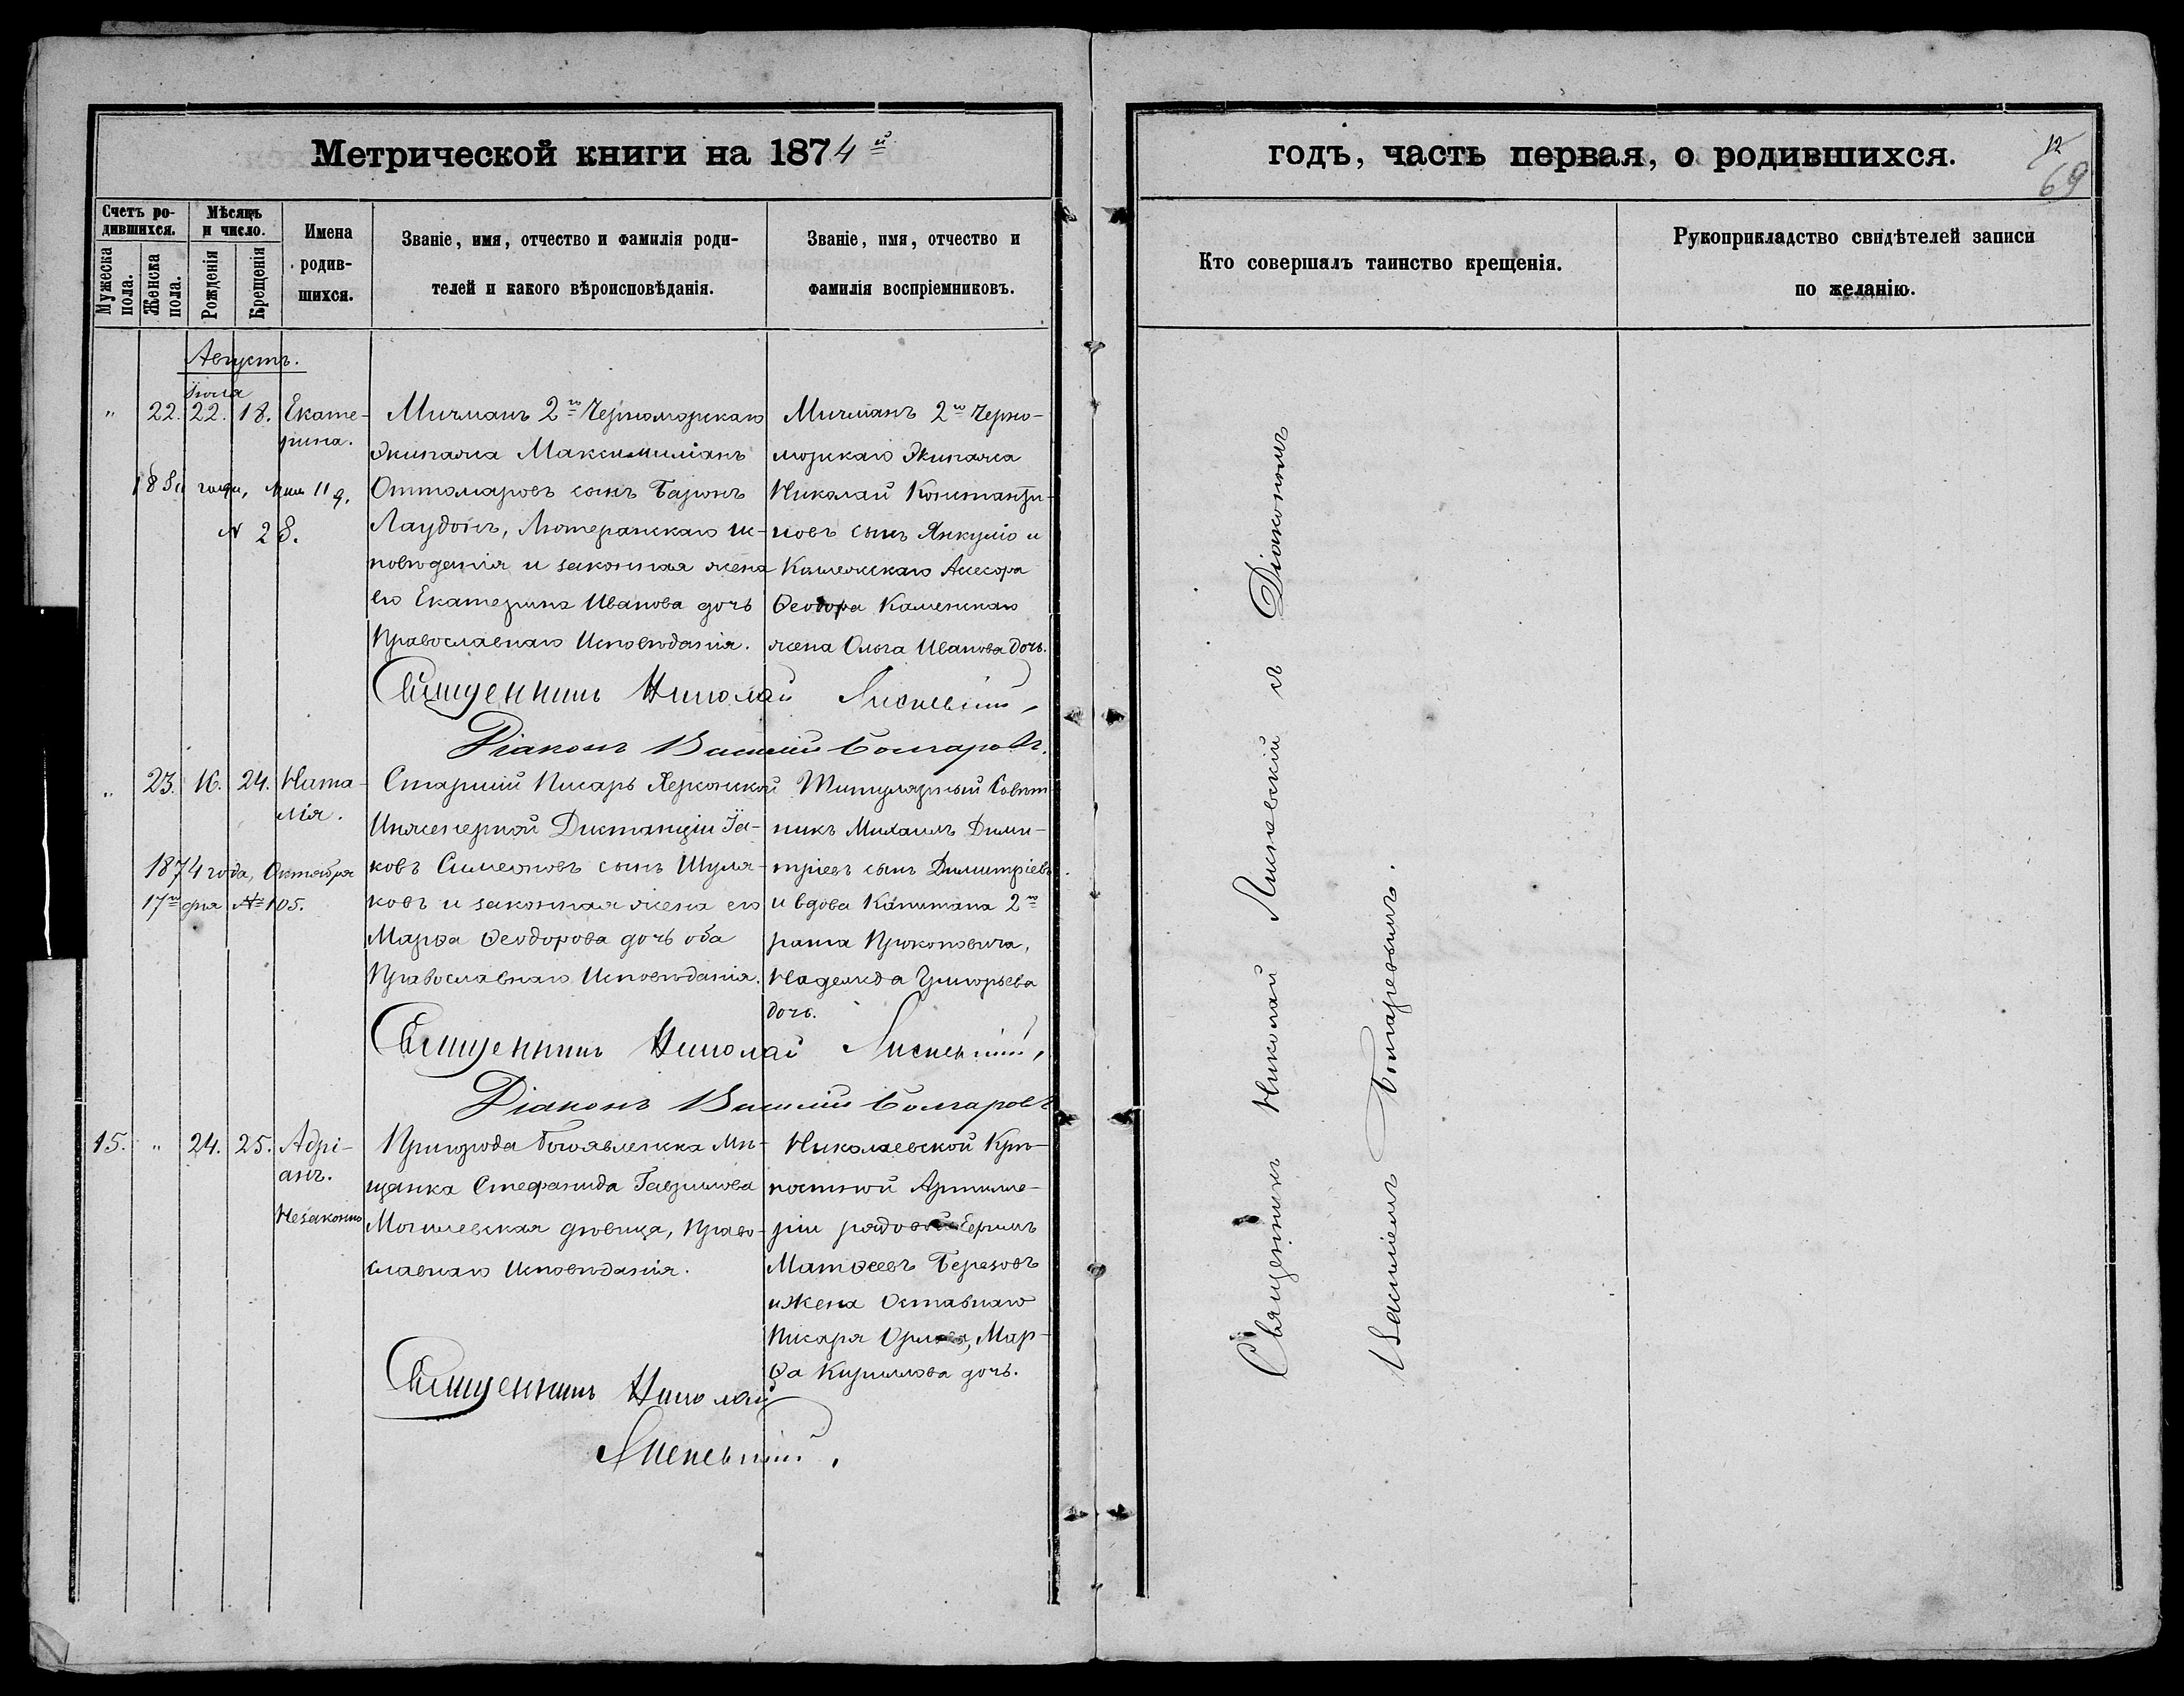 Метрической книги на 1874й
годъ, часть первая, о родившихся.
12
69
Счетъ ро-
дившихся.
Мужеска пола.
Женска пола.
Мѣсяцъ
и число.
Рожденія
Крещенія
Имена
родив-
шихся.
Званіе, имя, отчество и фамилія роди-
телей и какого вѣроисповѣданія.
Званіе, имя, отчество и
фамилія воспріемниковъ.
Кто совершалъ таинство крещенія.
Рукоприкладство свидѣтелей записи
по желанію.
Августъ.
Іюля
" 22. 22. 18. Екате-
рина.
188 года, 11 д.
№ 28.
Мичманъ 2го Черноморскаго
Экипажа Максимиліанъ
Оттомаровъ сынъ Баронъ
Лаудонъ, Лютеранскаго ис-
повѣденія и законная жена
его Екатерина Иванова дочь
Православнаго Исповѣданія.
Мичманъ 2го Черно-
морскаго Экипажа
Николай Константи-
новъ сынъ Янкуліо и
Коллежскаго Асесора
Ѳеодора Каменскаго
жена Ольга Иванова дочь.
Священникъ Николай Лисневскій,
Діаконъ Василій Болгаровъ.
" 23. 16. 24. Ната-
лія.
1874 года, Октября
17го дня № 105.
Старшій Писарь Херсонской
Инженерной Дистанціи Іа-
ковъ Симеоновъ сынъ Шуля-
ковъ и законная жена его
Марѳа Ѳеодорова дочь оба
Православнаго Исповѣданія.
Титулярный Совѣт-
никъ Михаилъ Дими-
тріевъ сынъ Димитріевъ
и вдова Капитана 2го
ранга Прокоповича,
Надежда Григорьева
дочь.
Священникъ Николай Лисневскій,
Діаконъ Василій Болгаровъ
15. " 24. 25. Адрі-
анъ.
Незаконно
Пригорода Богоявленска Мѣ-
щанка Стефанида Гаврилова
Могилевская дѣвица, Право-
славнаго Исповѣданія.
Николаевской Крѣ-
постной Артилле-
ріи рядовой
Матѳеевъ Березовъ
и Жена Оставнаго
Писаря Орлова, Мар-
ѳа Кириллова дочь.
Священникъ Николай
Лисневскій.
Священникъ Николай Лисневскій съ Діакономъ
Василіемъ Болгаровымъ.